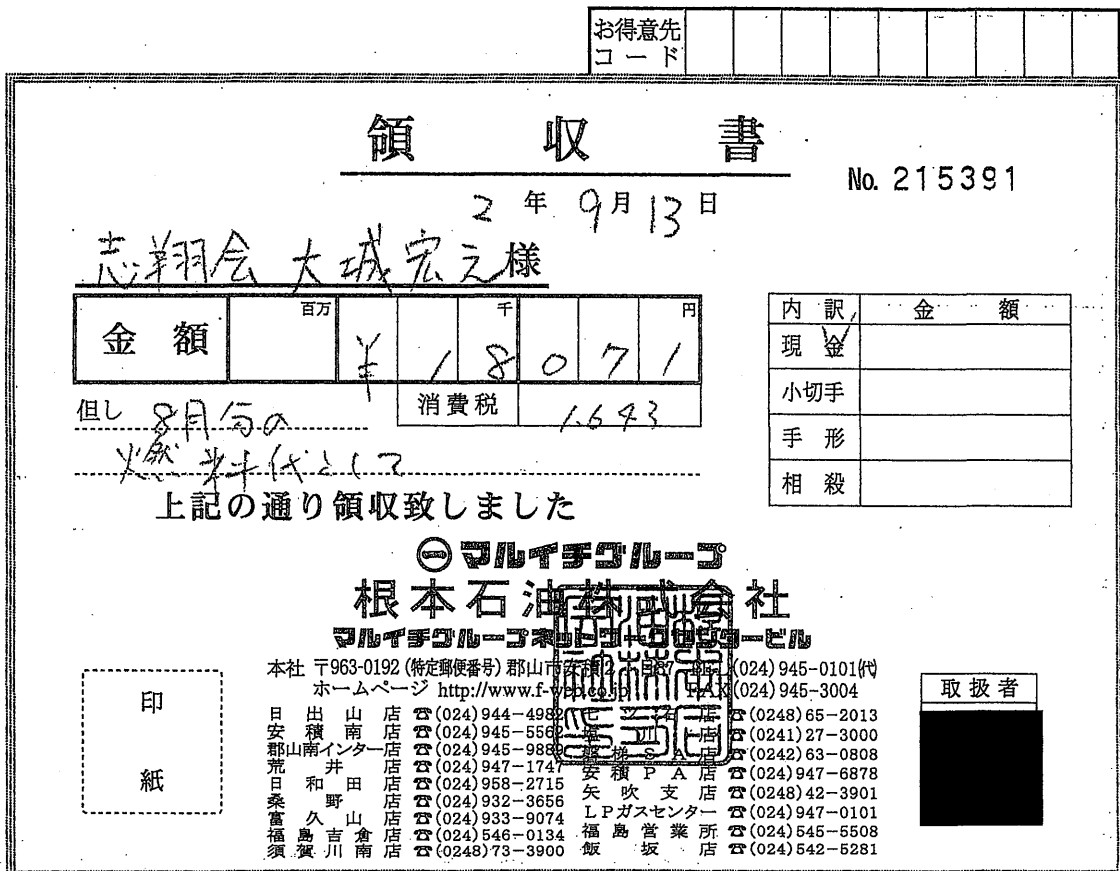 お得意先
コード
領収書
No. 215391
2年9月13日
志翔会 大城宏之様
金額 百万 千 円
¥18071
消費税 1.643
但し 8月分の
燃料代として
上記の通り領収致しました
内訳 金額
現金
小切手
手形
相殺
㊀マルイチグループ
根本石油株式会社
マルイチグループネットワークセンタービル
本社 〒963-0192(特定郵便番号)郡山市安積2 (024)945-0101(代)
ホームページ FAX(024)945-3004
日出山店 ☎(024)944-4982
安積南店 ☎(024)945-5562
郡山南インター店 ☎(024)945-9889
荒井店 ☎(024)947-1747
日和田店 ☎(024)958-2715
桑野店 ☎(024)932-3656
富久山店 ☎(024)933-9074
福島吉倉店 ☎(024)546-0134
須賀川南店 ☎(0248)73-3900
店 ☎(0248)65-2013
店 ☎(0241)27-3000
磐梯SA店 ☎(0242)63-0808
安積PA店 ☎(024)947-6878
矢吹支店 ☎(0248)42-3901
LPガスセンター ☎(024)947-0101
福島営業所 ☎(024)545-5508
飯坂店 ☎(024)542-5281
印
紙
取扱者